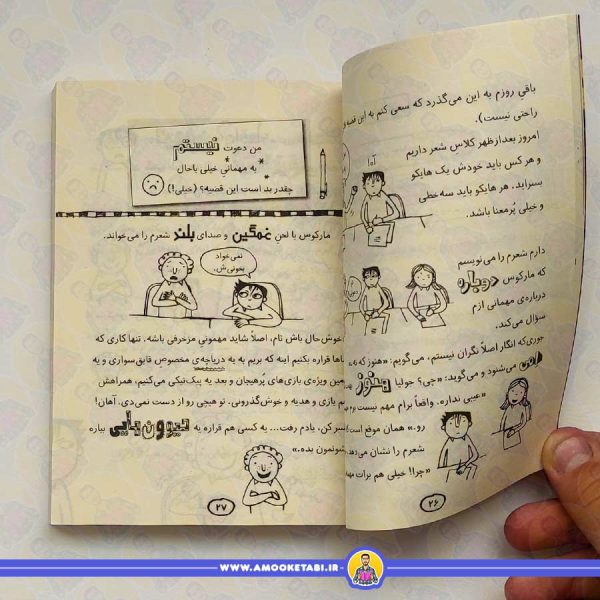 باقیِ روزم به این می‌گذرد که سعی کنم به این قصه
راحتی نیست).
امروز بعدازظهر کلاس شعر داریم
و هر کس باید خودش یک هایکو
بسراید. هر هایکو باید سه‌خطی
و خیلی پُرمعنا باشد.
آدا
دارم شعرم را می‌نویسم
که مارکوس دوباره
درباره‌ی مهمانی ازم
سؤال می‌کند.
جوری‌که انگار اصلاً نگران نیستم، می‌گویم: «هنوز که نه
می‌شنود و می‌گوید: «چی؟ جولیا هنوز
«عیبی نداره. واقعاً برام مهم نیست
رو.» همان موقع است
شعرم را نشان می‌دهد
«چرا! خیلی هم برات مهمه
۲۶
من دعوت نیستم
به مهمانی خیلی باحال
چقدر بد است این قصیه؟ (خیلی!)
مارکوس با لحن غمگین و صدای بلند شعرم را می‌خواند.
نمی‌خواد
بخونی‌ش.
خوش‌حال باش تام، اصلاً شاید مهمونی مزخرفی باشه. تنها کاری که
قراره بکنیم اینه که بریم به یه دریاچه‌ی مخصوص قایق‌سواری و یه
ویژه‌ی بازی‌های پُرهیجان و بعد یه پیک‌نیکی می‌کنیم، همراهش
بازی و هدیه و خوش‌گذرونی. تو هیچی رو از دست نمی‌دی. آهان!
صبر کن، یادم رفت... یه کسی هم قراره یه میوون‌بایی بیاره
نشونمون بده.»
۲۷
WWW.AMOOKETABI.IR